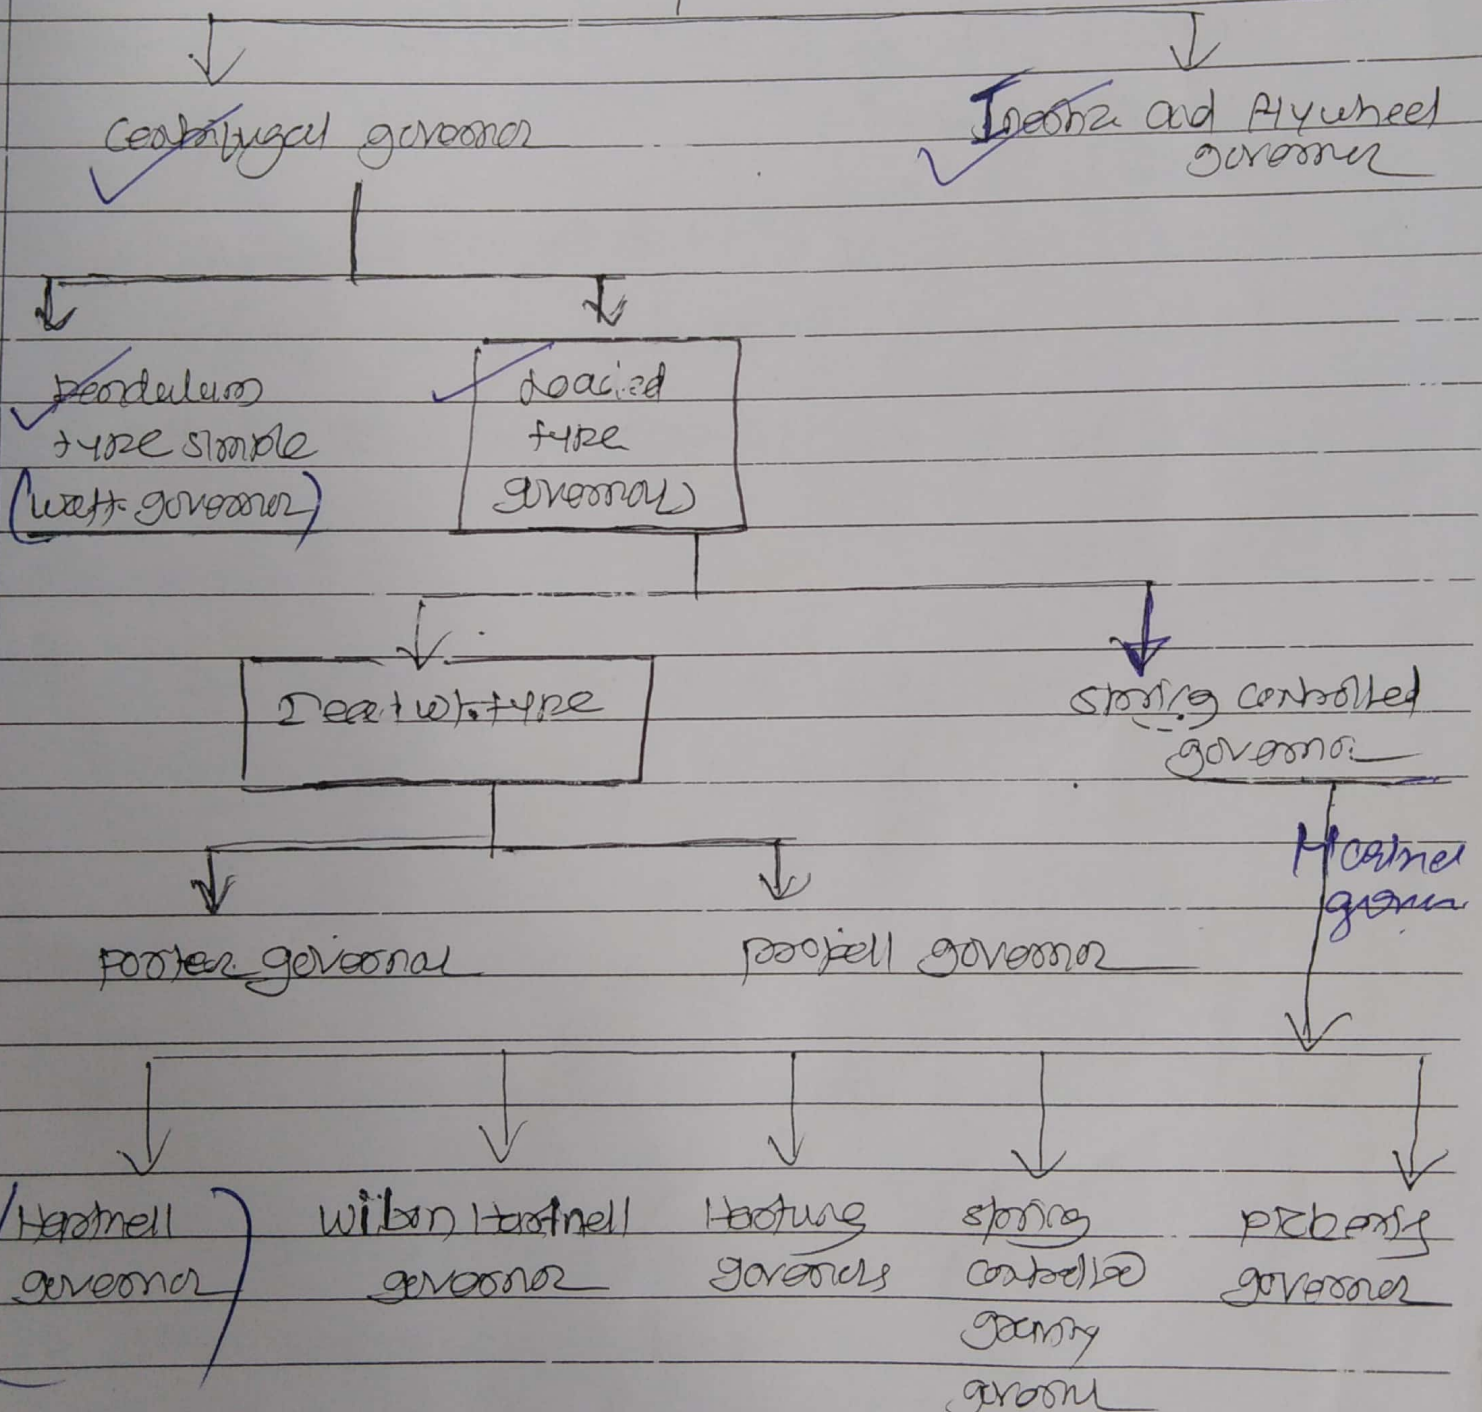 Centrifugal governor
Inertia and Flywheel
governer
Pendulum
type simple
(watt-governor)
Loaded
type
governor
Deat wt. type
spring controlled
governor
governor
porter governor
proell governor
Hartnell
governor
Wilson Hartnell
governor
Hartung
governors
spring
controlled
gravity
governor
pickering
governor